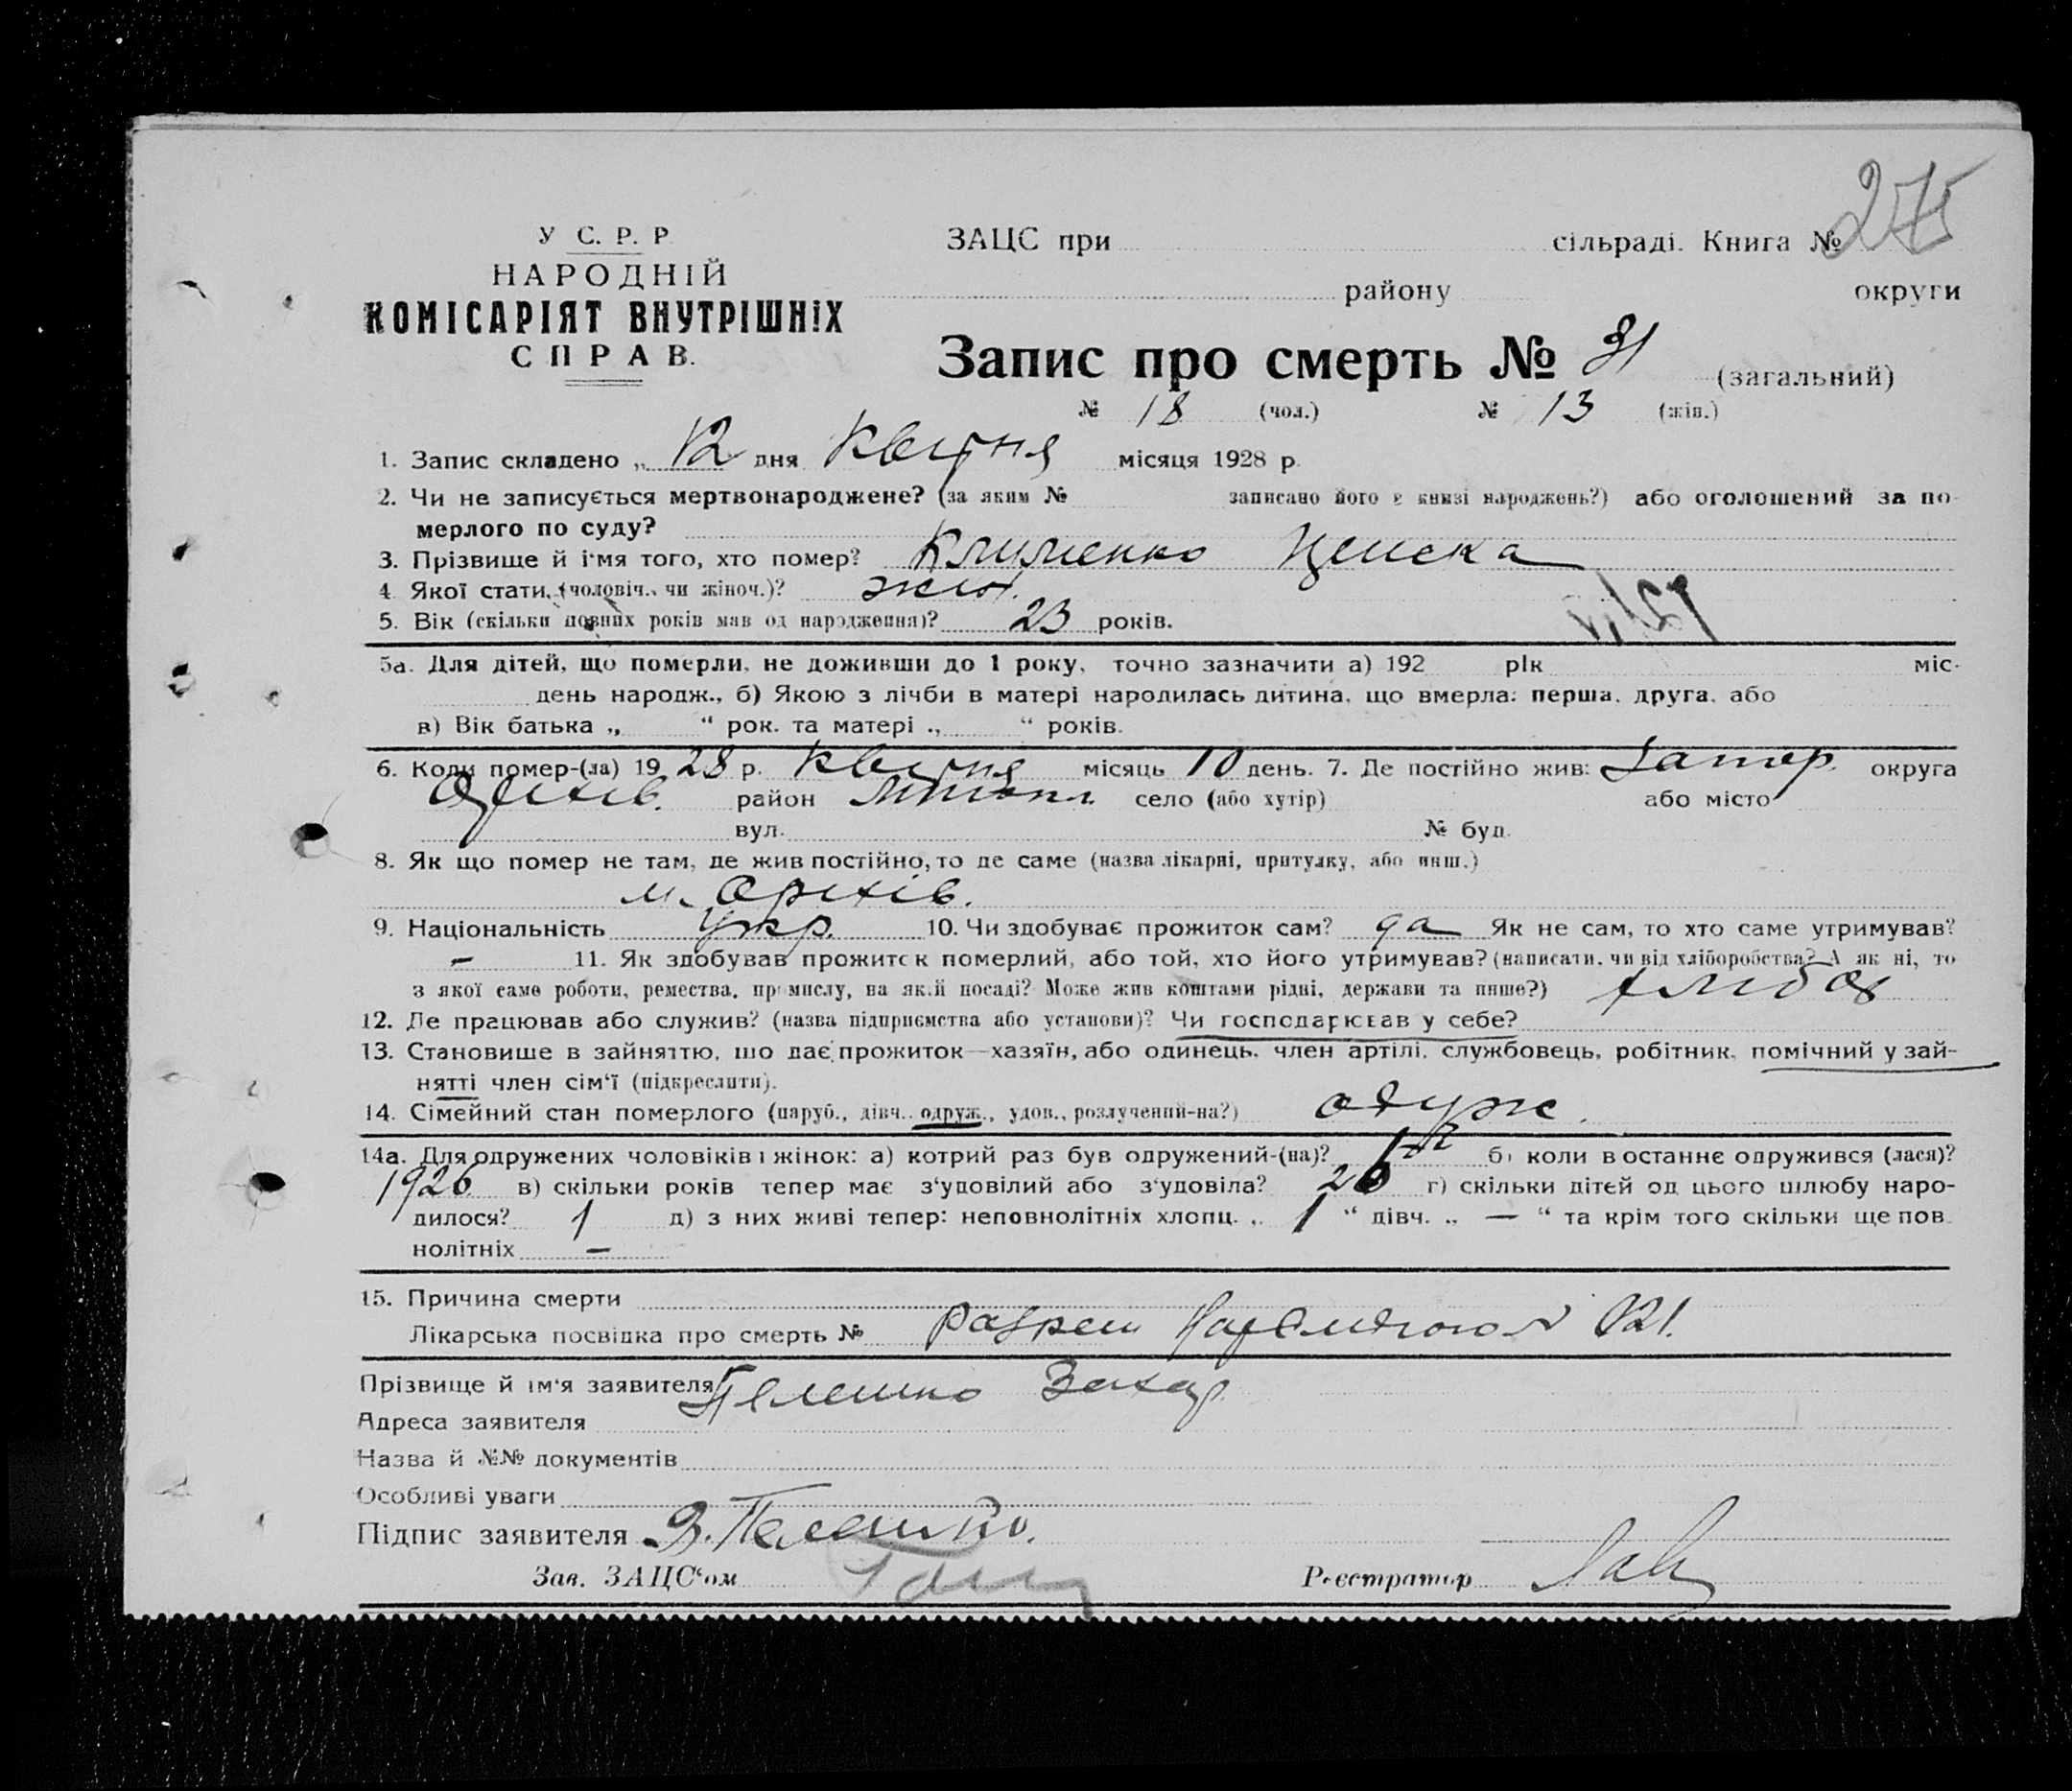 275
У С. Р. Р
НАРОДНІЙ
КОМІСАРІЯТ ВНУТРІШНІХ
СПРАВ.
ЗАЦС при сільраді. Книга №
району округи
Запис про смерть № 31 (загальний)
№ 18 (чол.) № 13 (жін.)
1. Запис складено „ 12 дня Квітня місяця 1928 р.
2. Чи не записується мертвонароджене? (за яким № записано його в книзі народжень?) або оголошений за по-
мерлого по суду?
3. Прізвище й ім'я того, хто помер? Клименко
4. Якої стати, (чоловіч., чи жіноч.)? жін.
5. Вік (скільки повних років мав од народження)? 23 років.
5а. Для дітей, що померли, не доживши до 1 року, точно зазначити а) 192 рік міс-
день народж., б) Якою з лічби в матері народилась дитина, що вмерла: перша, друга, або
в) Вік батька „ “ рок. та матері „ “ років.
6. Коли помер-(ла) 19 28 р. Квітня місяць 10 день. 7. Де постійно жив: Запор. округа
Оріхів. район село (або хутір) або місто
вул. № буд.
8. Як що помер не там, де жив постійно, то де саме (назва лікарні, притулку, або инш.)
м. Оріхів.
9. Національність Укр. 10. Чи здобуває прожиток сам? да Як не сам, то хто саме утримував?
– 11. Як здобував прожиток померлий, або той, хто його утримував? (написати, чи від хліборобства? А як ні, то
з якої саме роботи, ремества, промислу, на якій посаді? Може жив коштами рідні, держави та инше?) хлібор
12. Де працював або служив? (назва підприємства або установи)? Чи господарював у себе?
13. Становище в зайняттю, що дає прожиток—хазяїн, або одинець, член артілі, службовець, робітник, помічний у зай-
нятті член сім'ї (підкреслити).
14. Сімейний стан померлого (паруб., дівч., одруж., удов., розлучений-на?) одруж.
14а. Для одружених чоловіків і жінок: а) котрий раз був одружений-(на)? 1-й б) коли востаннє одружився (лася)?
1926 в) скільки років тепер має з'удовілий або з'удовіла? г) скільки дітей од цього шлюбу наро-
дилося? 1 д) з них живі тепер: неповнолітніх хлопц. „ 1 “ дівч. „ — “ та крім того скільки ще пов-
нолітніх –
15. Причина смерти
Лікарська посвідка про смерть №
Прізвище й ім'я заявителя Захар
Адреса заявителя
Назва й №№ документів
Особливі уваги
Підпис заявителя
Зав. ЗАЦС'ом Реєстратор